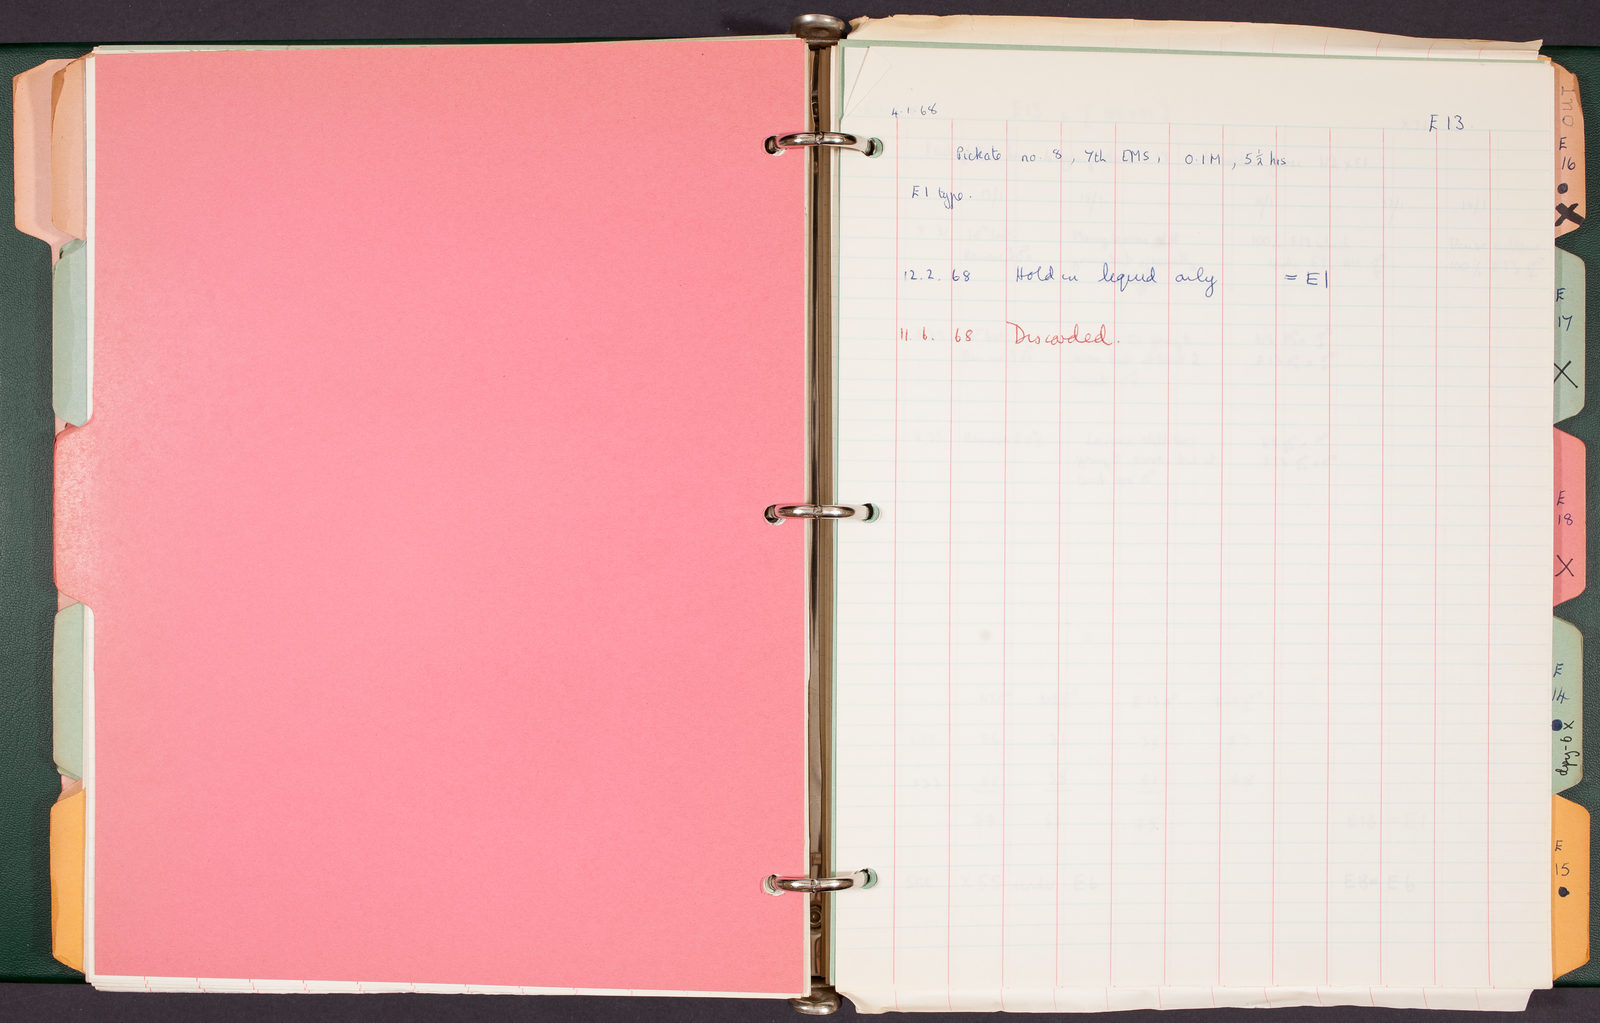 4.1.68
E 13
Pickate no. 8, 7th EMS, 0.1M, 5½ hrs
E1 type.
12.2.68 Hold in liquid only = E1
11.6.68 Discarded.
Ino
E
16
X
E
17
X
E
18
X
E
14
dpy-6 X
E
15